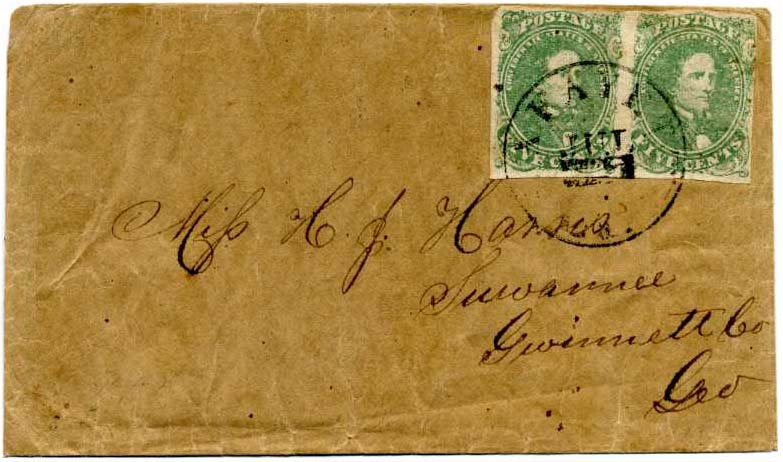 POSTAGE POSTAGE
CONFEDERATE STATES OF AMERICA
FIVE CENTS FIVE CENTS
Miss H. J. Harris
Suwannee
Gwinnett Co
Geo